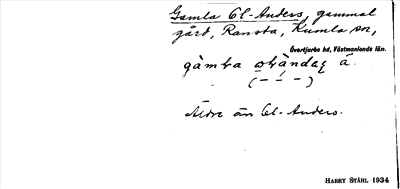 Gamla Ol-Anders, gammal
gård, Ransta, Kumla sn,
Övertjurbo hd, Västmanlands län.
gàmɫa oɫàndaʂ å.
(– –́ –)
Äldre än Ol-Anders.
HARRY STÅHL 1934